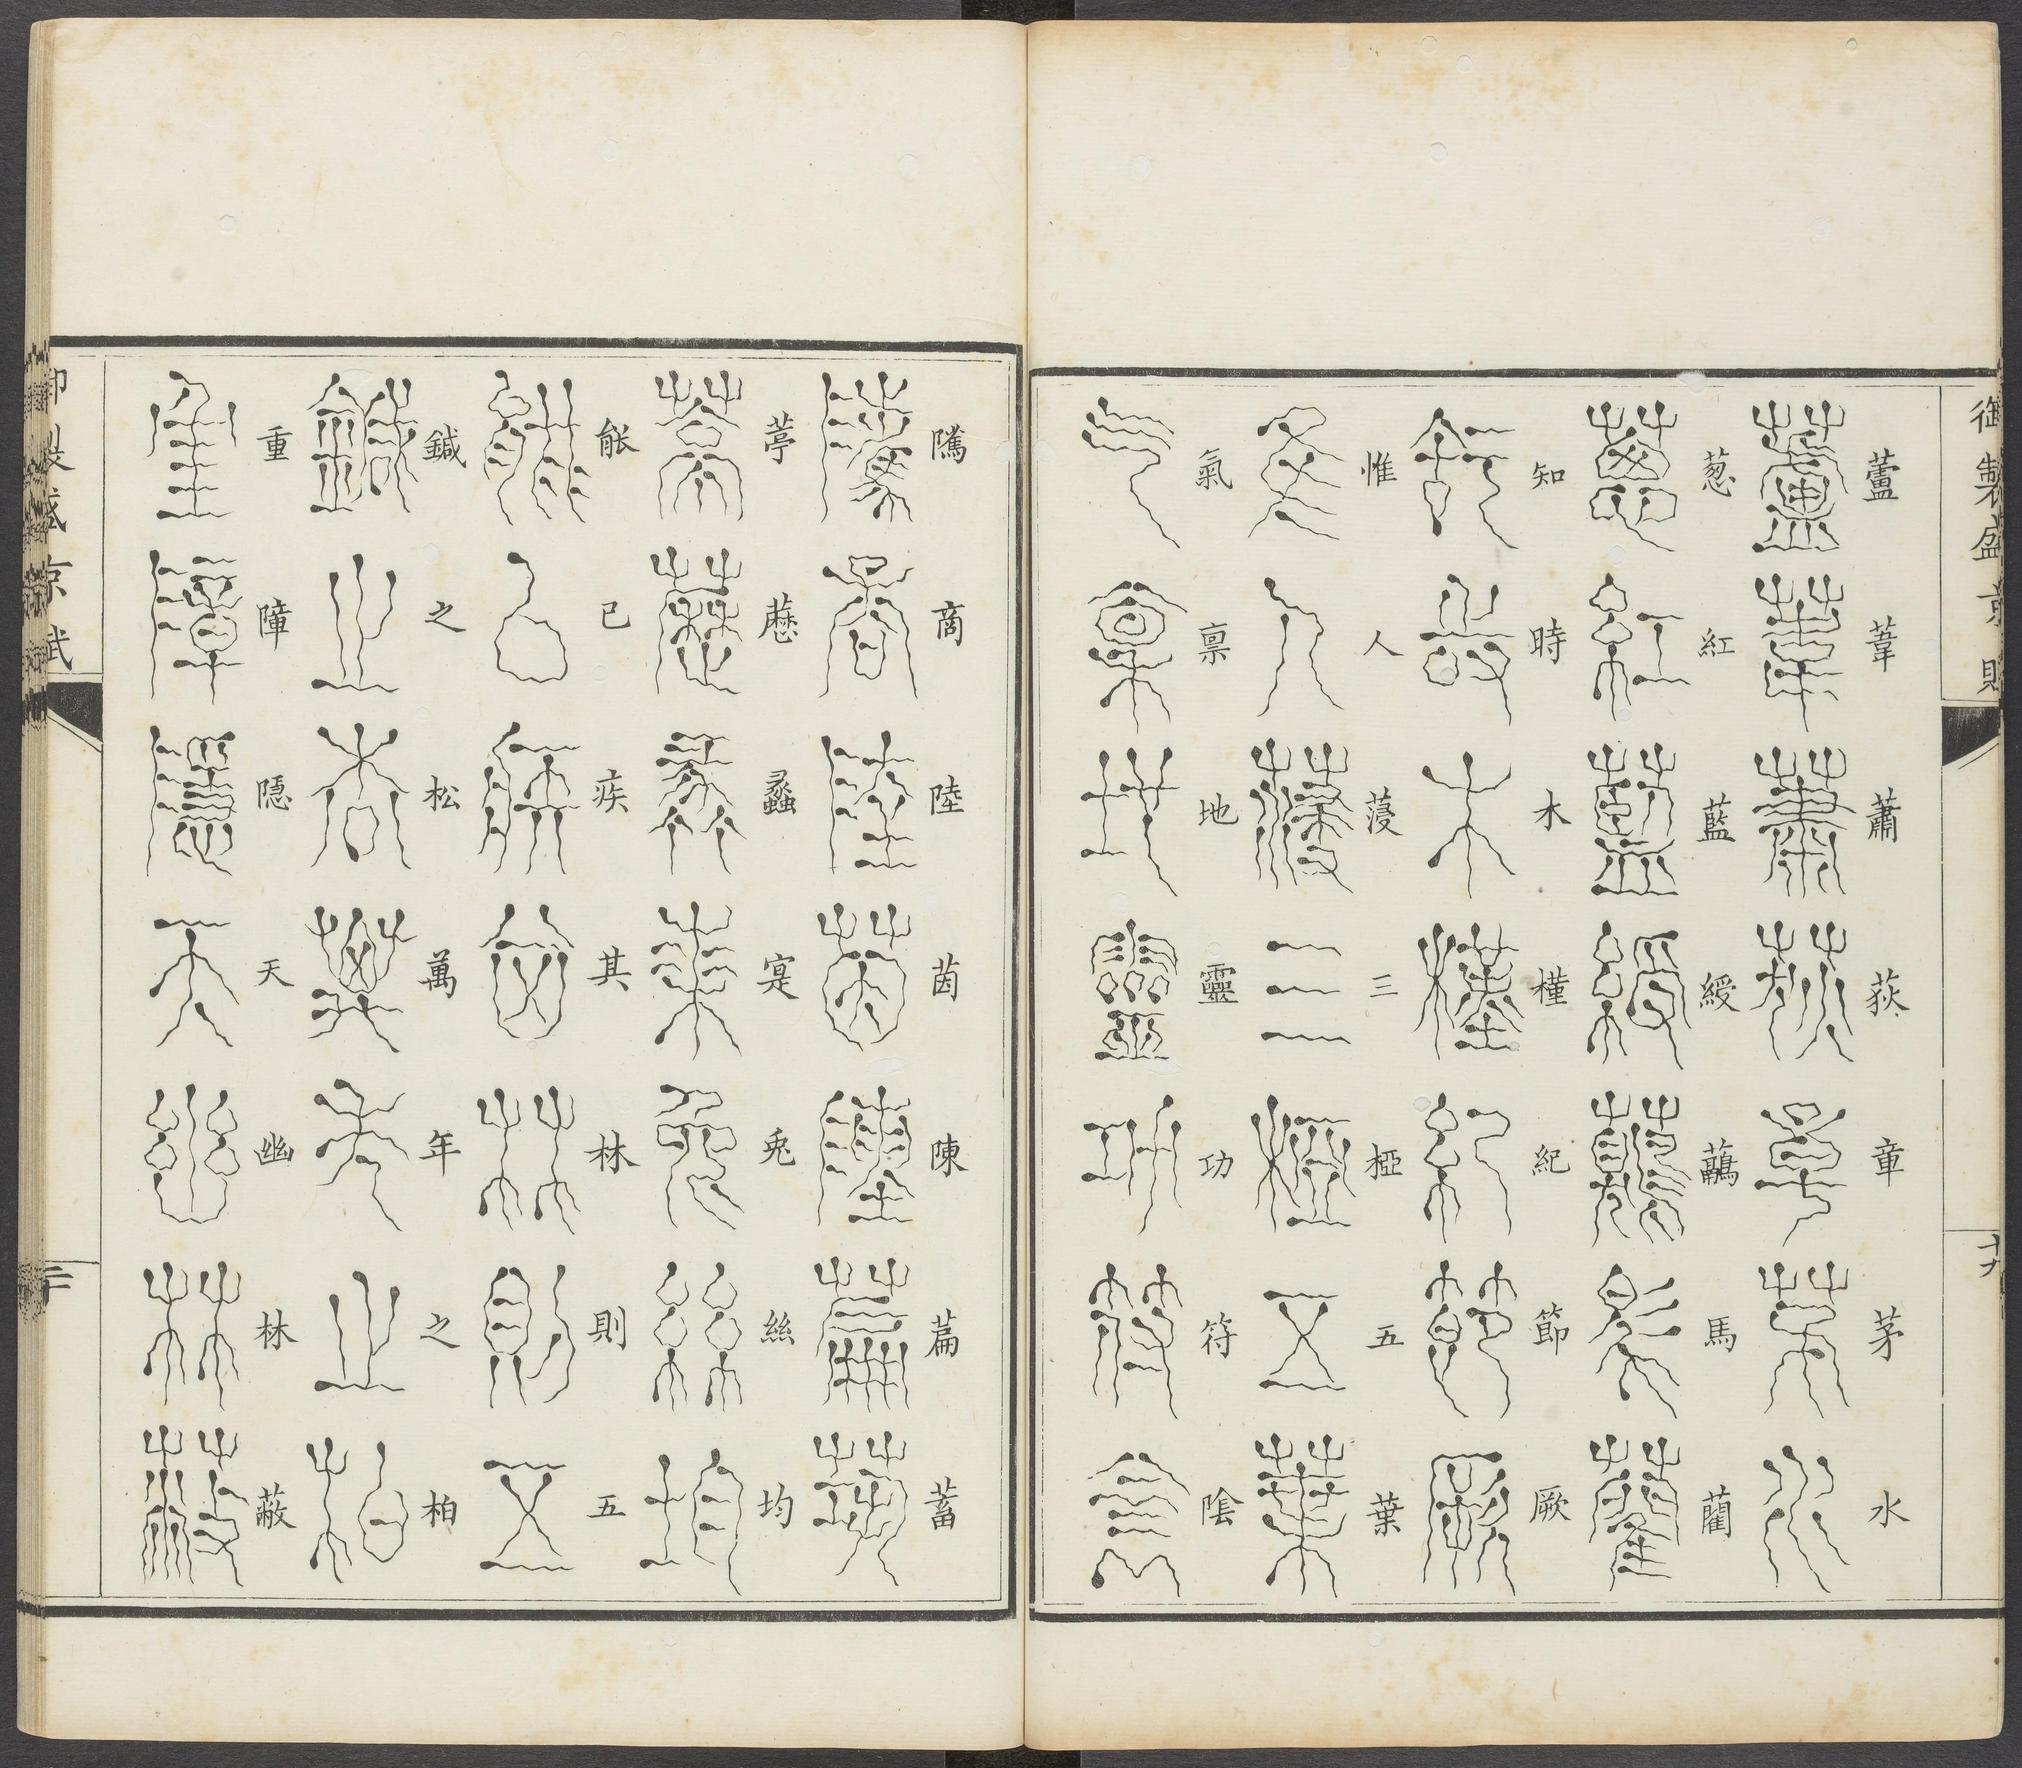 御製盛京賦
十九
蘆葦蕭荻章茅水
葱紅藍綬虉馬藺
知時木槿紀節厥
惟人葠三椏五葉
氣稟地靈功符陰
隲商陸茵陳萹蓄
葶藶蠡寔兎絲均
能已疾其林則五
鍼之松萬年之柏
重障隱天幽林蔽
御製盛京賦